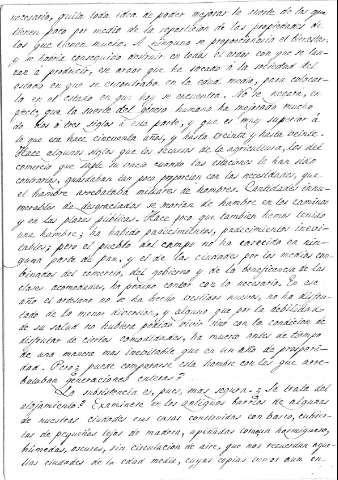 necesario, quita toda idea de poder mejorar la suerte de los que
tienen poco por medio de la reparticion de las propiedades de
los que tienen mucho. A ninguno se proporcionaria el bienestar,
y se habria conseguido destruir en todos el ardor con que se lan-
zan a producir, un ardor que ha sacado á la sociedad del
estado en que se encontraba en la edad media, para colocar-
la en el estado en que hoy se encuentra. No se necesita, en
efecto, que la suerte del género humano ha mejorado mucho
de dos ó tres siglos á esta parte, y que es muy superior á
lo que era hace cincuenta años, y hasta treinta y hasta veinte.
Hace algunos siglos que los recursos de la agricultura, los del
comercio que suple su oficio cuando las estaciones le han sido
contrarias, guardaban tan poca proporcion con las necesidades, que
el hambre arrebataba millares de hombres. Cantidades innu-
merables de desgraciados se morian de hambre en los caminos
y en las plazas públicas. Hace poco que tambien hemos tenido
una hambre; ha habido padecimientos, padecimientos inevi-
tables; pero el pueblo del campo no ha carecido en nin-
guna parte de pan, y el de las ciudades por los medios com-
binados del comercio, del gobierno y de la beneficencia de las
clases acomodadas, ha podido contar con lo necesario. En ese
año el artesano no se ha hecho vestidos nuevos, no ha disfru-
tado de la menor diversion, y alguno que por la debilidad
de su salud no hubiera podido vivir sino con la condicion de
disfrutar de ciertas comodidades, ha muerto antes de tiempo
de una manera mas inevitable que en un año de prosperi-
dad. Pero ¿puede compararse esta hambre con las que arre-
bataban generaciones enteras?
La subsistencia es, pues, mas segura. ¿Se trata del
alojamiento? Examinese en los antiguos barrios de algunas
de nuestras ciudades esas casas construidas con barro, cubier-
tas de pequeñas tejas de madera, apiñadas como un hormiguero,
húmedas, oscuras, sin circulacion de aire, que nos recuerdan aque-
llas ciudades de la edad media, cuyas copias vemos aun en